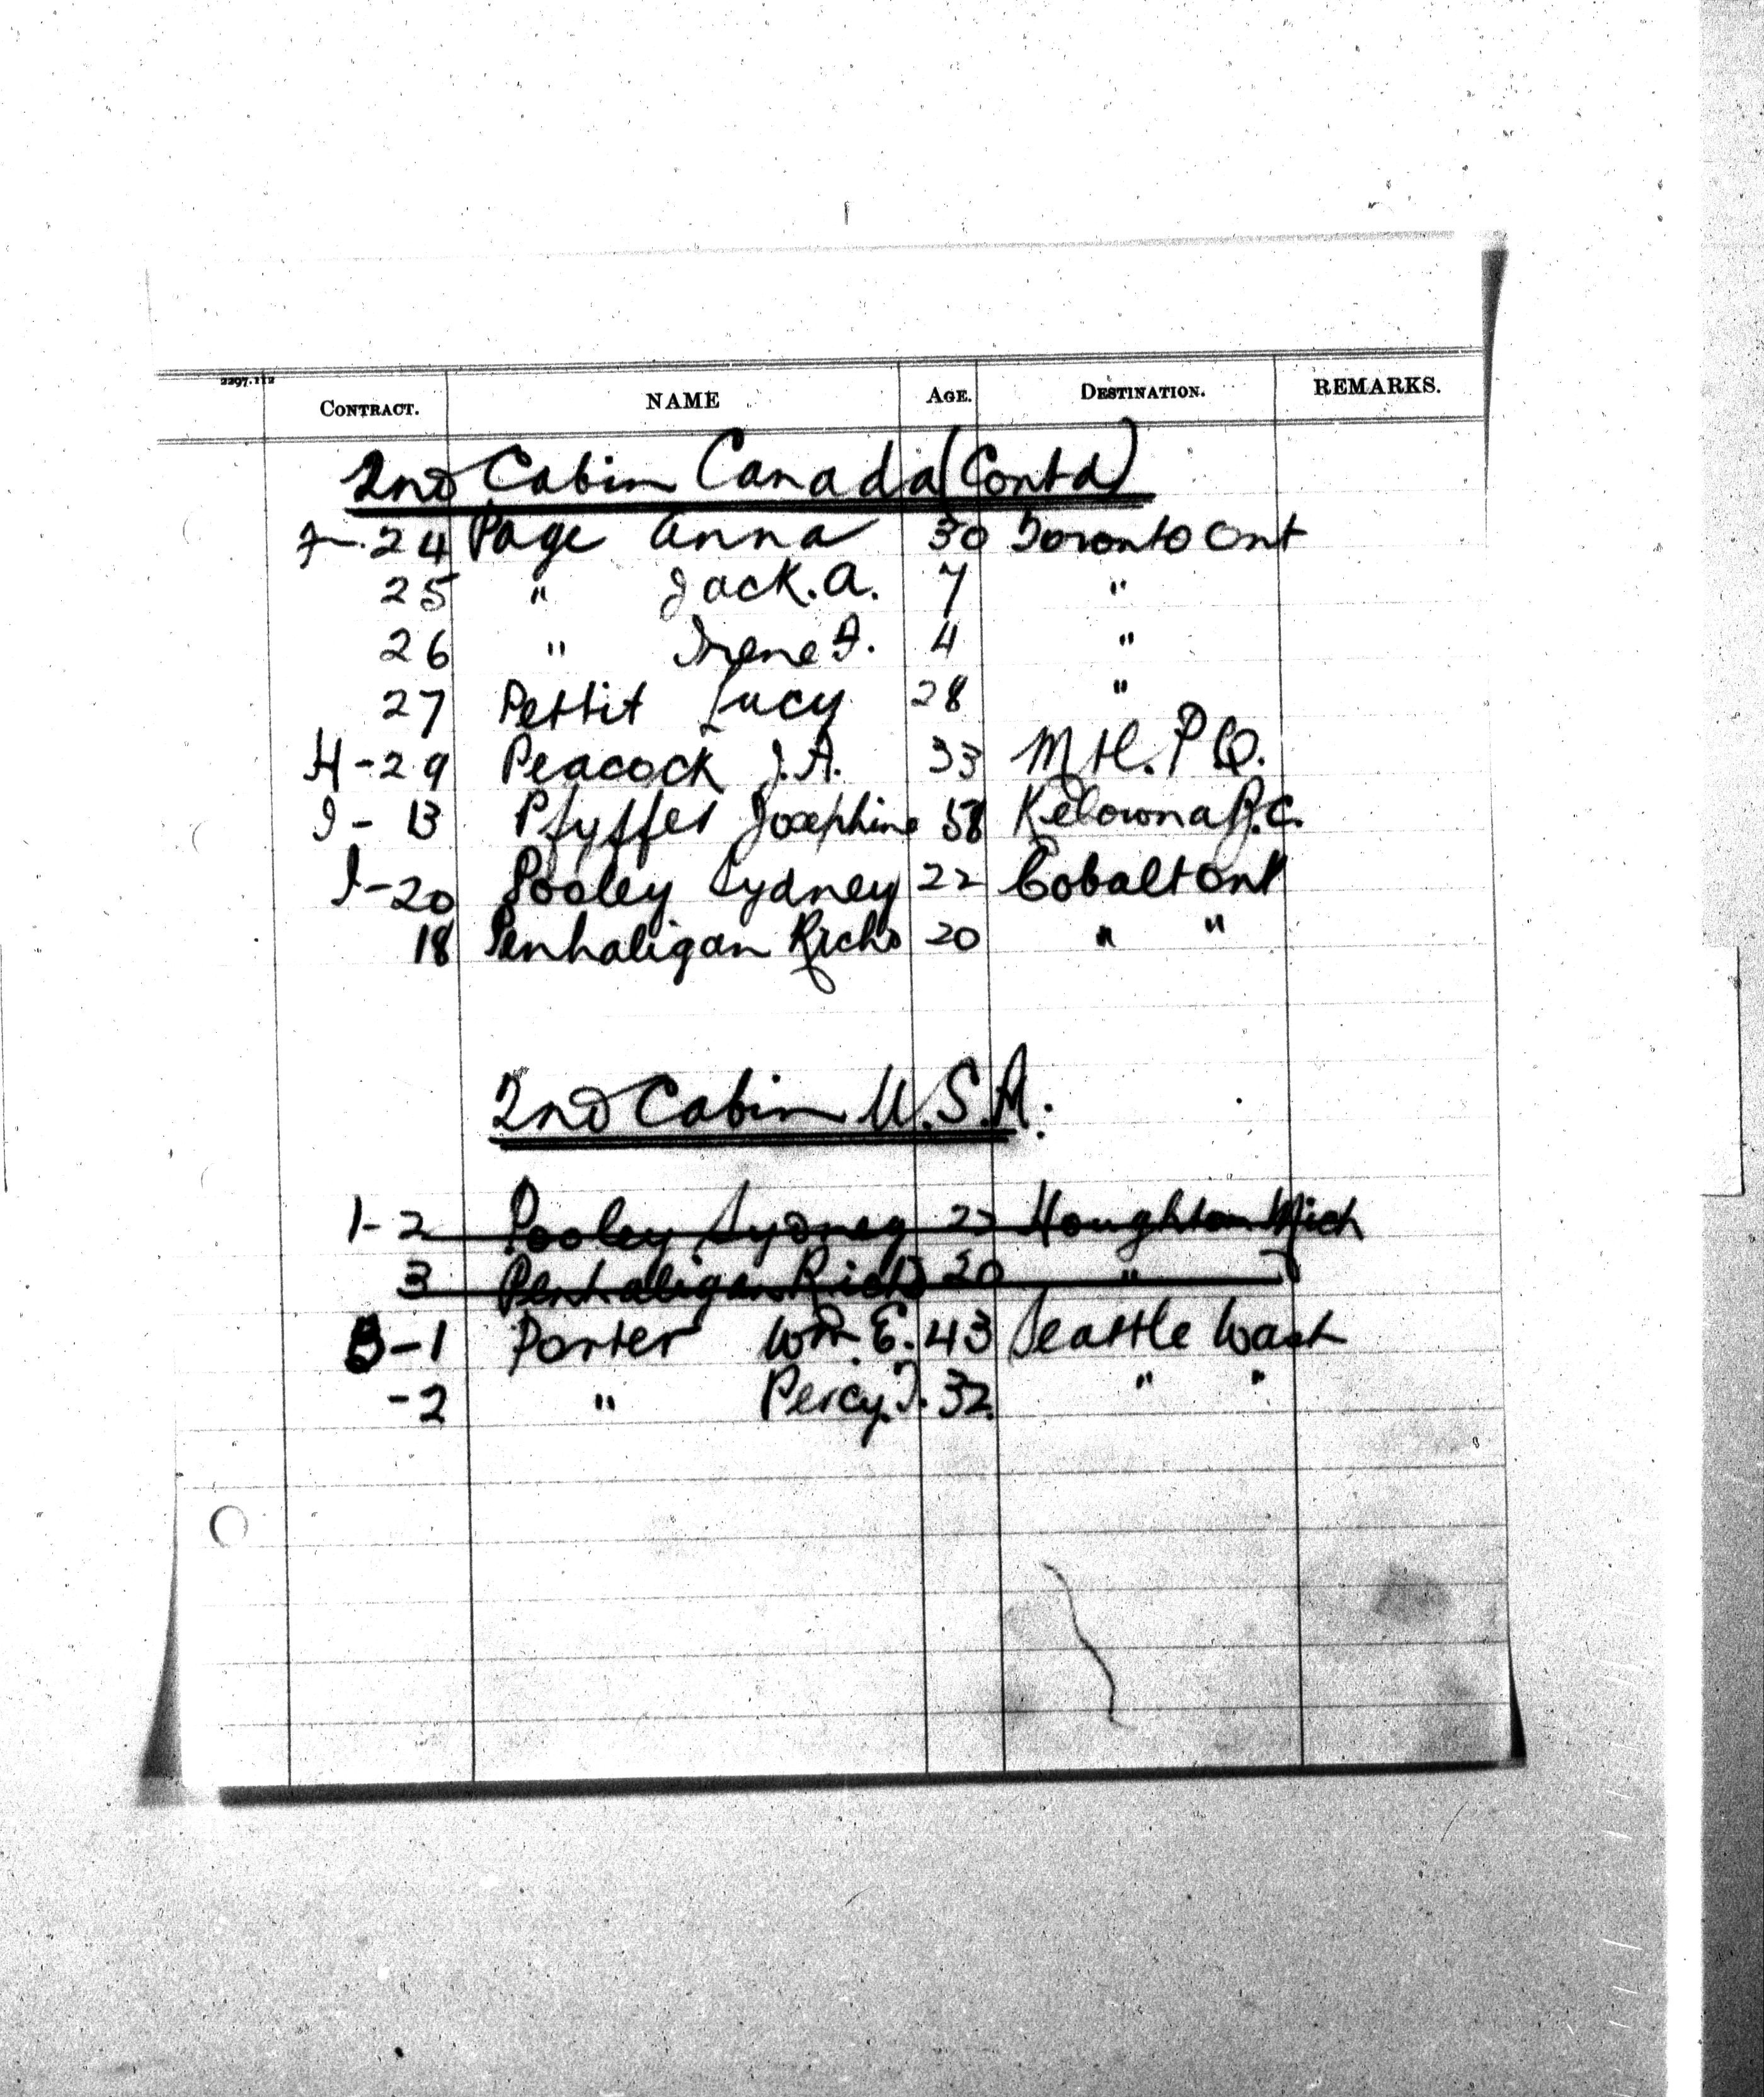 2297.112
CONTRACT. NAME AGE. DESTINATION. REMARKS.
2nd Cabin Canada (Contd)
7-24 Page Anna 30 Toronto Ont
25 " Jack. A. 7 "
26 " Irene I. 4 "
27 Pettit Lucy 28 "
H-29 Peacock J.A. 33 M H. P Q.
I-13 Pfyffer Josephine 58 Kelowna B.C.
I-20 Pooley Sydney 22 Cobalt Ont
18 Penhaligan Richd 20 " "
2nd Cabin U.S.A.
1-2 Pooley Sydney 22 Houghton Mich
3 Penhaligan Richd 20 "
B-1 Porter Wm. E. 43 Seattle Wash
-2 " Percy. J. 32. " "